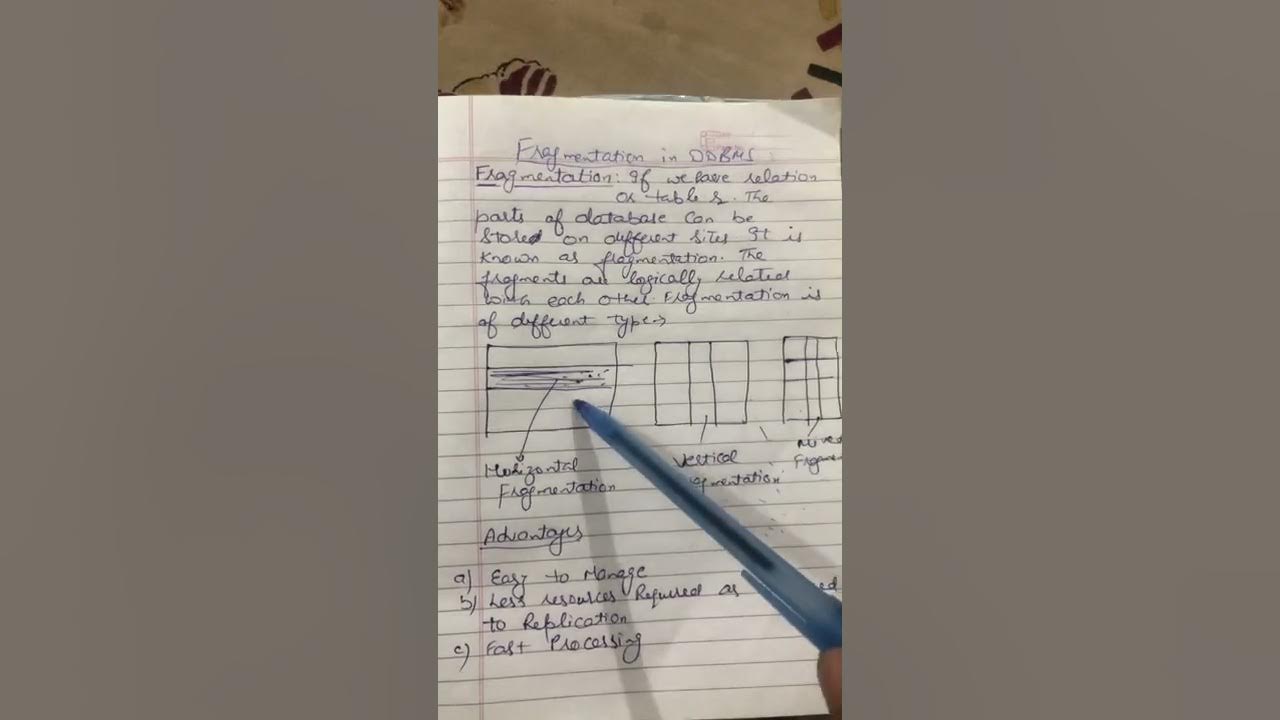 Fragmentation in DDBMS
Fragmentation: If we have relation
or table r. The
parts of database can be
stored on different sites It is
known as fragmentation. The
fragments are logically related
with each other. Fragmentation is
of different type→
Horizontal
Fragmentation
Vertical
gmentation
Fragmen
Advantages
a) Easy to Manage
b) Less resources Required as
to Replication
c) Fast Processing